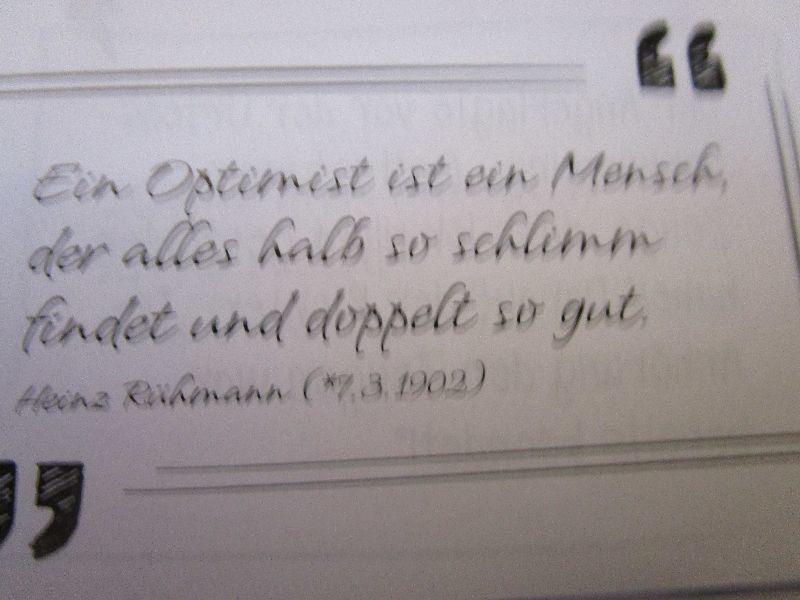 Ein Optimist ist ein Mensch,
der alles halb so schlimm
findet und doppelt so gut.
Heinz Rühmann (*7.3.1902)